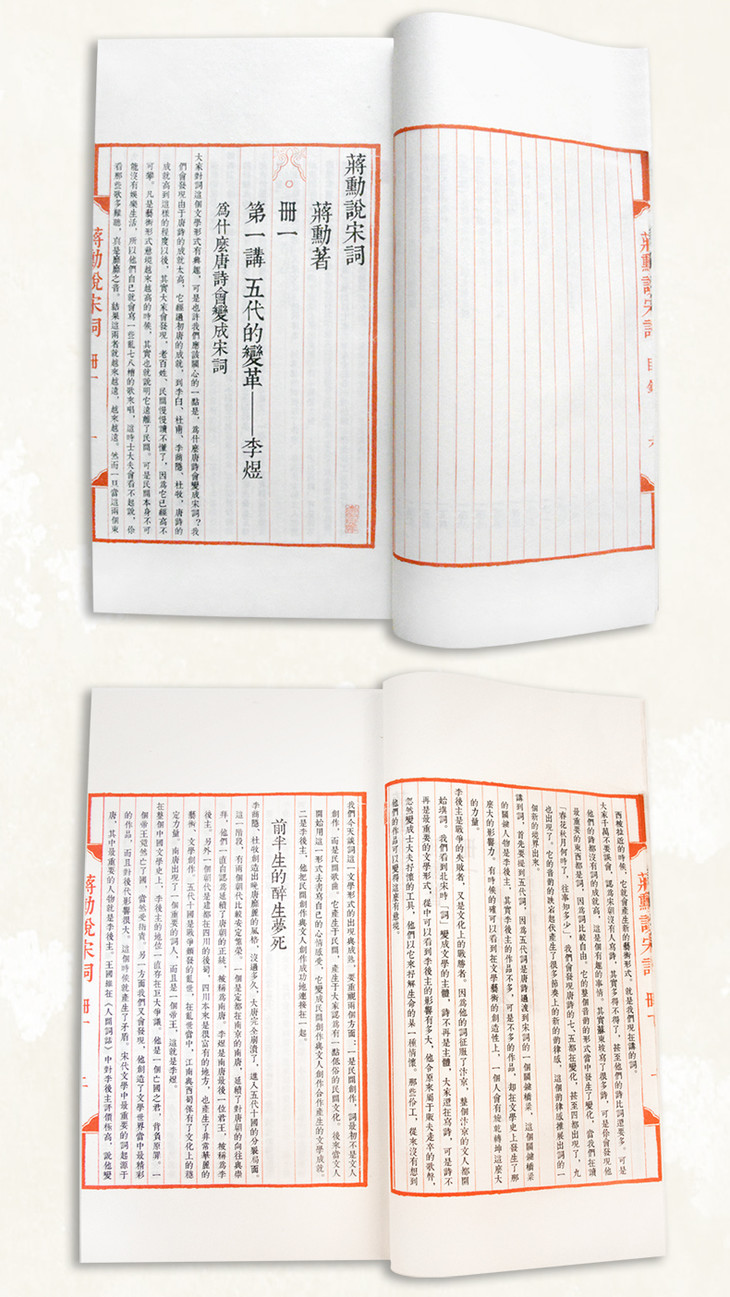 蔣勳說宋詞 目錄 六
蔣勳說宋詞
蔣勳著
冊一
第一講 五代的變革——李煜
爲什麼唐詩會變成宋詞
大家對詞這個文學形式有興趣,可是也許我們應該關心的一點是,爲什麼唐詩會變成宋詞?我
們會發現由于唐詩的成就太高,它經過初唐的成就,到李白、杜甫、李商隱、杜牧,唐詩的
成就高到這樣的程度以後,其實大家會發現,老百姓、民間慢慢讀不懂了,因爲它已經高不
可攀。凡是藝術形式意境越來越高的時候,其實也就說明它遠離了民間。可是民間本身不可
能沒有娛樂生活,所以他們自己就會寫一些亂七八糟的歌來唱,這時士大夫會看不起說,你
看那些歌多難聽,真是靡靡之音。結果這兩者就越來越遠,越來越遠。然而一旦當這兩個東
蔣勳說宋詞 冊一 一
蔣勳說宋詞 冊一
西被拉近的時候,它就會產生新的藝術形式,就是我們現在講的詞。
大家千萬不要誤會,認爲宋朝沒有人寫詩,其實多得不得了,甚至他們的詩比詞還要多。可是
他們的詩都沒有詞的成就高,這是個有趣的事情。其實蘇東坡寫了很多詩,可是你會發現他
最重要的東西都是詞,因爲詞比較自由。它的整個音韵的形式當中發生了變化,當我們在讀
「春花秋月何時了,往事知多少」,我們會發現唐詩的七、五都在變化,甚至四都出現了,九
也出現了。它的音韵的跌宕起伏產生了很多節奏上的新的韵律感,這個韵律感推展出詞的一
個新的境界出來。
講到詞,首先要提到五代詞,因爲五代詞是唐詩過渡到宋詞的一個關鍵橋梁,這個關鍵橋梁
的關鍵人物是李後主。其實李後主的作品不多,可是不多的作品,却在文學史上發生了那
麼大的影響力。有時候的確可以看到在文學藝術的創造性上,一個人會有旋乾轉坤這麼大
的力量。
李後主是戰爭的失敗者,又是文化上的戰勝者。因爲他的詞征服了汴京,整個汴京的文人都開
始填詞。我們看到北宋時「詞」變成文學的主體,詩不再是主體,大家還在寫詩,可是詩不
再是最重要的文學形式,從中可以看到李後主的影響有多大,他令原來屬于販夫走卒的歌聲,
忽然變成士大夫抒懷的工具,他們以它來抒解生命的某一種情懷。那些伶工,從來沒有想到
他們的作品可以變得這麼有意境。
我們今天談詞這一文學形式的出現與成熟,要重視兩個方面:一是民間創作,詞最初不是文人
創作,而是民間歌曲,它產生于民間,產生于大家認爲有一點低俗的民間文化。後來當文人
開始用這一形式去書寫自己的心情感受,它變成民間創作與文人創作合作產生的文學成就。
二是李後主,他把民間創作與文人創作成功地連接在一起。
前半生的醉生夢死
李商隱、杜牧創造出晚唐靡麗的風格,沒過多久,大唐完全崩潰了,進入五代十國的分裂局面。
這一階段,有兩個朝代比較安定繁榮。一個是定都在南京的南唐,延續了對唐朝的向往與崇
拜,他們一直自認爲延續了唐朝的正統,被稱爲南唐,李煜是南唐最後一位君王,被稱爲李
後主。另外一個朝代是建都在四川的後蜀,四川本來是很富有的地方,也產生了非常華麗的
藝術、文學創作。五代十國是戰爭頻發的亂世,在亂世當中,江南與西蜀保有了文化上的穩
定力量。南唐出現了一個重要的詞人,而且是一個帝王,這就是李煜。
在整個中國文學史上,李後主的地位一直存在巨大爭議。他是一個亡國之君,背負原罪。一
個帝王竟然亡了國,當然受指責。另一方面我們又會發現,他創造了文學世界當中最精彩
的作品,而且對後代影響很大,這個時候就產生了矛盾。宋代文學中最重要的詞起源于
唐,其中最重要的人物就是李後主。王國維在《人間詞話》中對李後主評價極高,說他變
蔣勳說宋詞 冊一 二